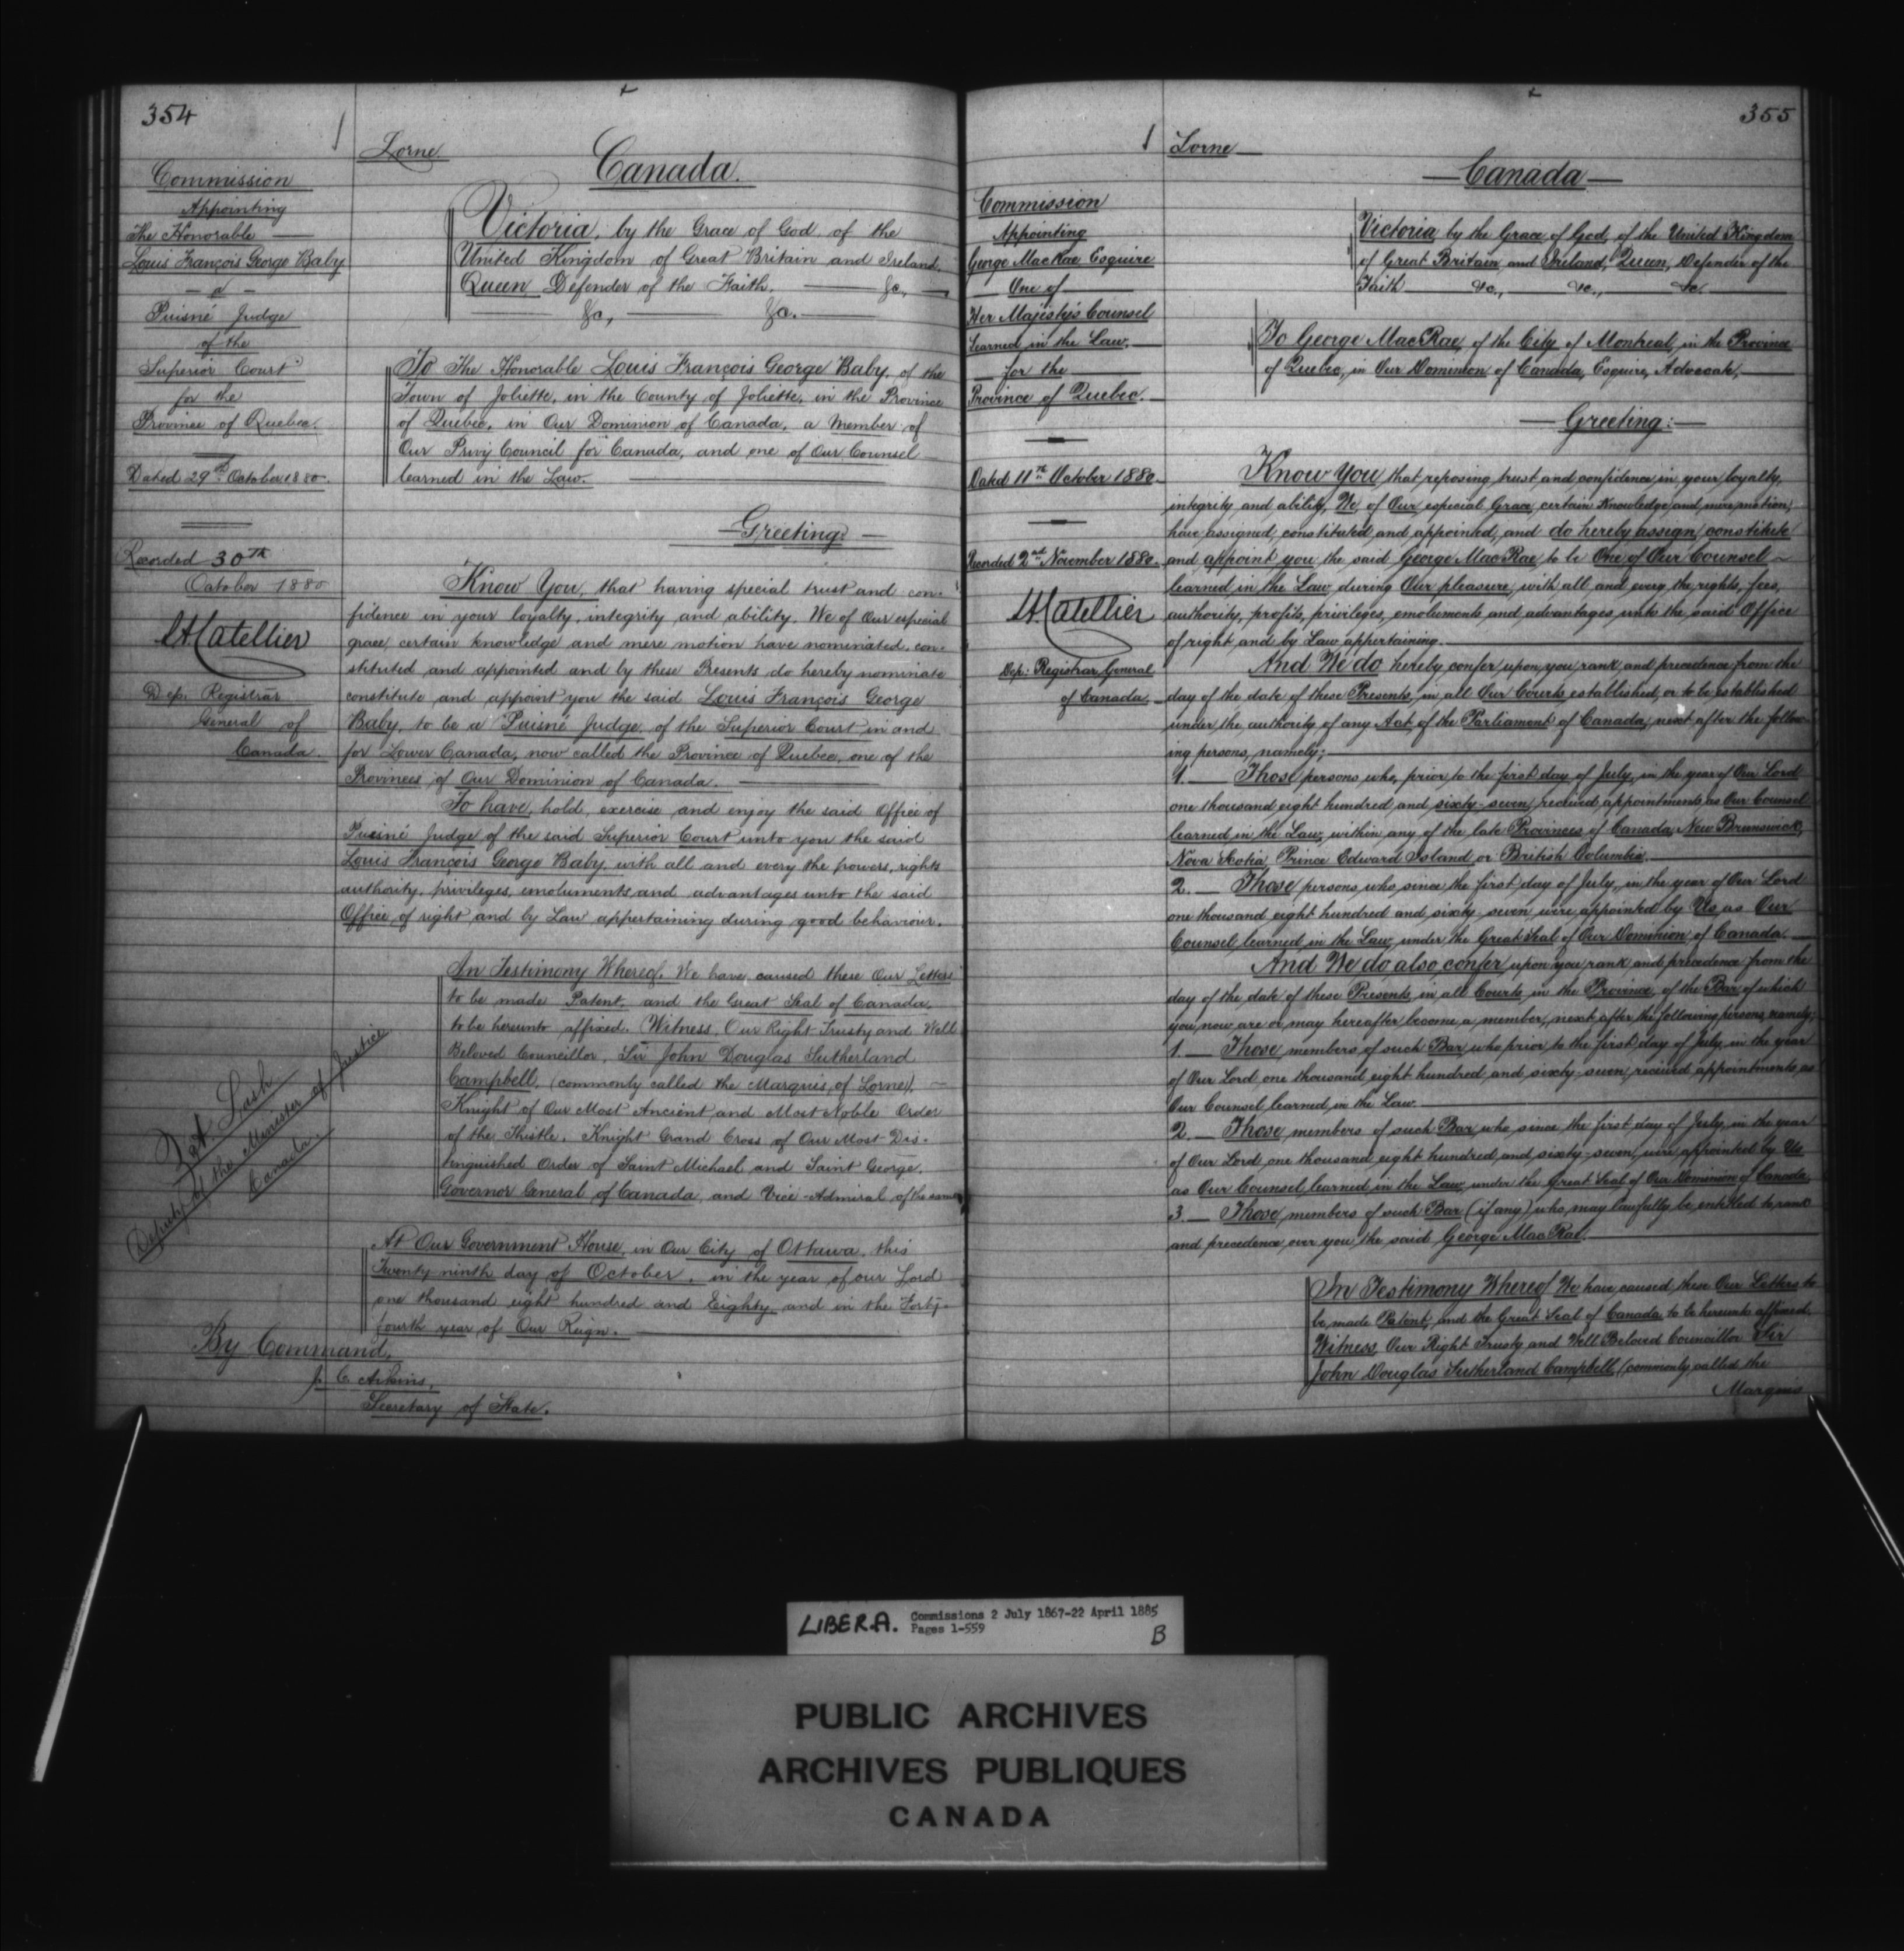 354
Lorne
Canada.
Commission
Appointing
The Honorable
Louis François George Baby
- a -
Puisné Judge
of the
Superior Court
for the
Province of Quebec.
Dated 29th October 1880.
Recorded 30th
October 1880
LA Catellier
Dep. Registrar
General of
Canada.
Victoria, by the Grace of God, of the
United Kingdom of Great Britain and Ireland,
Queen, Defender of the Faith, &c,
&c, &c.
To The Honorable Louis François George Baby, of the
Town of Joliette, in the County of Joliette, in the Province
of Quebec, in Our Dominion of Canada, a Member of
Our Privy Council for Canada, and one of Our Counsel
learned in the Law.
Greeting
Know You, that having special trust and con-
fidence in your loyalty, integrity and ability, We of Our especial
grace, certain knowledge and mere motion have nominated, con-
stituted and appointed and by these Presents do hereby nominate
constitute and appoint you the said Louis François George
Baby, to be a Puisné Judge, of the Superior Court in and
for Lower Canada, now called the Province of Quebec, one of the
Provinces of Our Dominion of Canada.
To have, hold, exercise and enjoy the said Office of
Puisné Judge of the said Superior Court unto you the said
Louis François George Baby, with all and every the powers, rights
authority, privileges, emoluments and advantages unto the said
Office, of right and by Law appertaining during good behaviour.
In Testimony Whereof, We have caused these Our Letters
to be made Patent, and the Great Seal of Canada,
to be hereunto affixed. Witness, Our Right Trusty and Well
Beloved Councillor, Sir John Douglas Sutherland
Campbell, (commonly called the Marquis of Lorne),
Knight of Our Most Ancient and Most Noble Order
of the Thistle, Knight Grand Cross of Our Most Dis-
tinguished Order of Saint Michael and Saint George,
Governor General of Canada, and Vice-Admiral of the same
At Our Government House, in Our City of Ottawa, this
Twenty ninth day of October, in the year of our Lord
one thousand eight hundred and Eighty and in the Forty-
fourth year of Our Reign.
Lash
Deputy of the Minister of Justice
Canada.
By Command,
J. C. Aikins,
Secretary of State.
355
Lorne
Canada
Commission
Appointing
George MacRae Esquire
One of
Her Majesty's Counsel
learned in the Law,
for the
Province of Quebec.
Dated 11th October 1880.
Recorded 2nd November 1880.
LA Catellier
Dep: Registrar General
of Canada.
Victoria, by the Grace of God, of the United Kingdom
of Great Britain, and Ireland, Queen, Defender of the
Faith &c., &c., &c.
To George MacRae, of the City of Montreal, in the Province
of Quebec, in Our Dominion of Canada, Esquire, Advocate,
Greeting:
Know You that reposing trust and confidence in your loyalty,
integrity and ability, We, of Our especial Grace, certain knowledge and mere motion,
have assigned, constituted and appointed, and do hereby assign, constitute
and appoint you the said George MacRae, to be One of Our Counsel
learned in the Law during Our pleasure, with all and every the rights, fees,
authority, profits, privileges, emoluments and advantages unto the said Office
of right and by Law appertaining.
And We do hereby confer upon you rank and precedence from the
day of the date of these Presents, in all Our Courts established, or to be established
under the authority of any Act of the Parliament of Canada, next after the follow-
ing persons, namely;
1. Those persons who, prior to the first day of July, in the year of Our Lord
one thousand eight hundred and sixty-seven, received appointments as Our Counsel
learned in the Law, within any of the late Provinces of Canada, New Brunswick,
Nova Scotia, Prince Edward Island or British Columbia.
2. Those persons, who, since the first day of July, in the year of Our Lord
one thousand eight hundred and sixty seven were appointed by Us as Our
Counsel learned in the Law, under the Great Seal of Our Dominion of Canada.
And We do also confer upon you rank and precedence from the
day of the date of these Presents, in all Courts, in the Province, of the Bar of which
you now are or may hereafter become a member, next after the following persons, namely;
1. Those members of such Bar, who prior to the first day of July, in the year
of Our Lord one thousand eight hundred, and sixty-seven, received appointments, as
Our Counsel learned in the Law.
2. Those members of such Bar, who since the first day of July, in the year
of Our Lord one thousand eight hundred, and sixty-seven, were appointed by Us
as Our Counsel learned in the Law, under the Great Seal of Our Dominion of Canada
3. Those members of such Bar (if any) who may lawfully be entitled to rank
and precedence over you the said George MacRae.
In Testimony Whereof We have caused these Our Letters to
be made Patent, and the Great Seal of Canada, to be hereunto affixed.
Witness, Our Right Trusty and Well Beloved Councillor Sir
John Douglas Sutherland Campbell (commonly called the
Marquis
LIBER.A. Commissions 2 July 1867-22 April 1885
Pages 1-559
B
PUBLIC ARCHIVES
ARCHIVES PUBLIQUES
CANADA